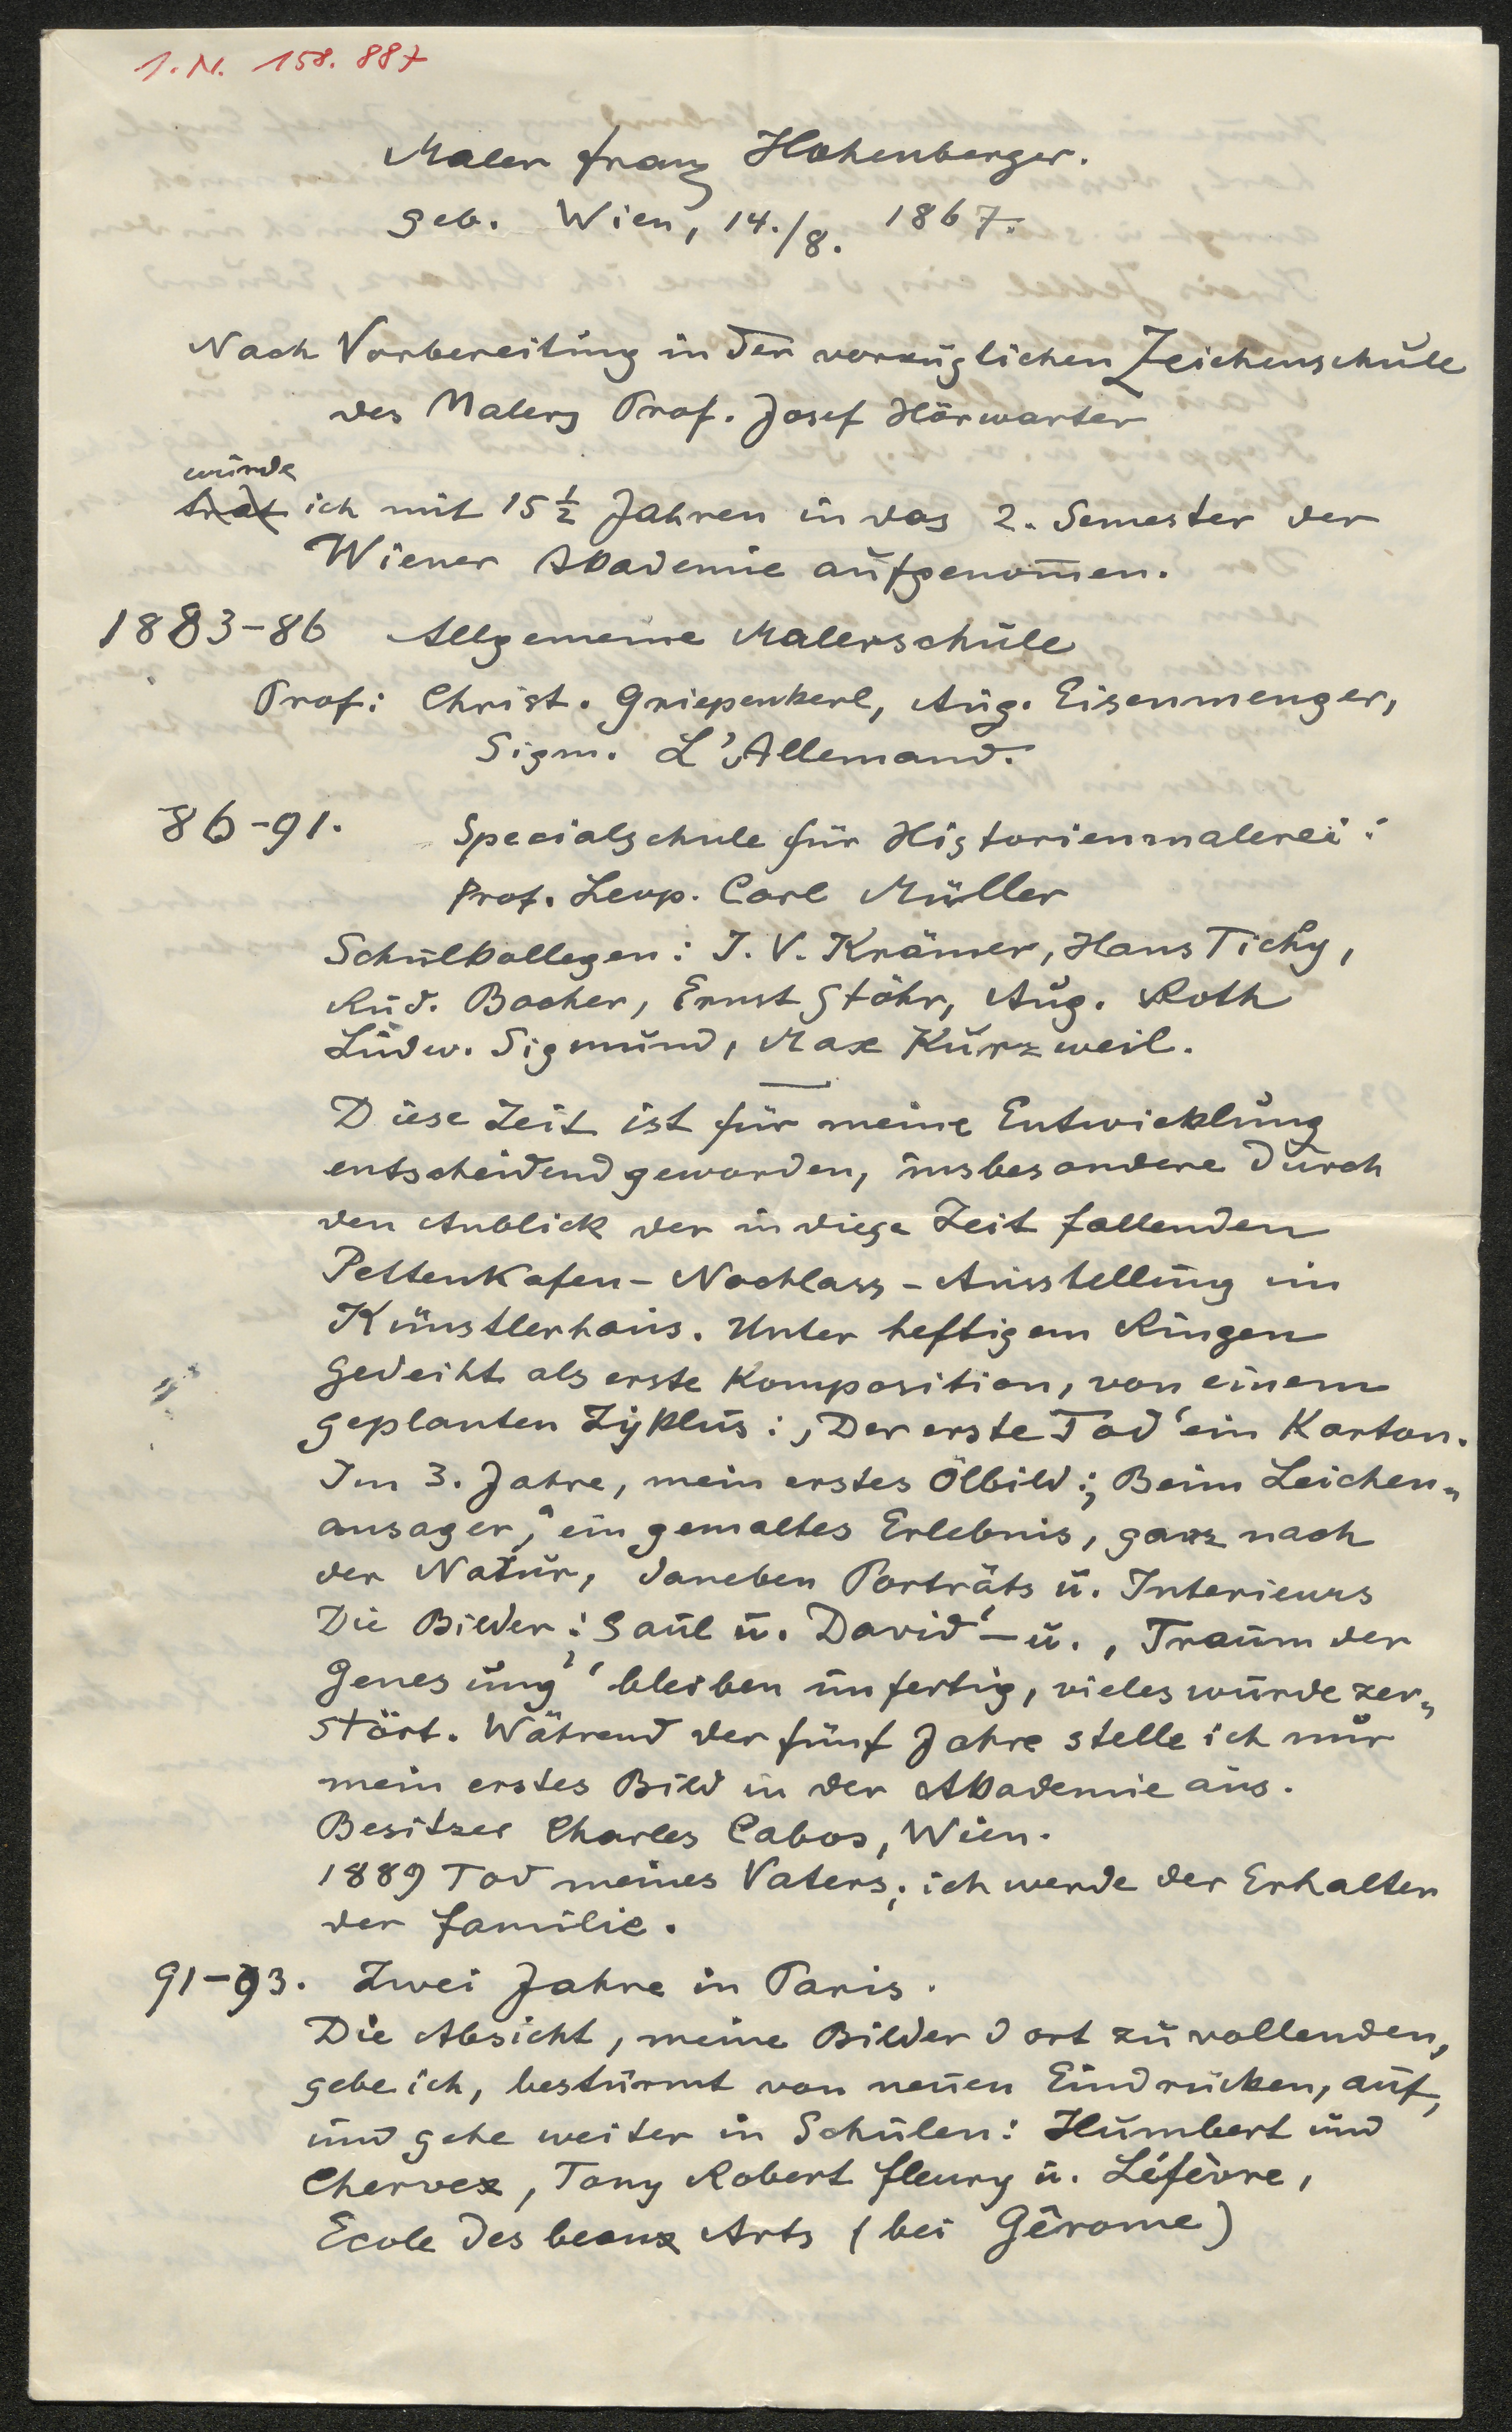 I.N. 158.887
Maler Franz Hohenberger.
geb. Wien, 14./8. 1867.
Nach Vorbereitung in der vorzüglichen Zeichenschule
des Malers Prof. Josef Hörwarter
wurde
trat ich mit 15 ½ Jahren in das 2. Semester der
Wiener Akademie aufgenom̅en.
1883-86 Allgemeine Malerschule
Prof: Christ. Griepenkerl, Aug. Eisenmenger,
Sigm. L'Allemand.
86-91. Specialschule für Historienmalerei:
Prof. Leop. Carl Müller
Schulkollegen: J. V. Krämer, Hans Tichy,
Rud. Bacher, Ernst Stöhr, Aug. Roth
Ludw. Sigmund, Max Kurzweil.
Diese Zeit ist für meine Entwicklung
entscheidend geworden, insbesondere durch
den Anblick der in diese Zeit fallenden
Pettenkofen-Nachlass-Ausstellung im
Künstlerhaus. Unter heftigem Ringen
gedeiht als erste Komposition, von einem
geplanten Zyklus: ‚Der erste Tod‘ ein Karton.
Im 3. Jahre, mein erstes Ölbild: „Beim Leichen„
ansager,“ ein gemaltes Erlebnis, ganz nach
der Natur, daneben Porträts u. Interieurs
Die Bilder: Saul u. David‘ – u. ‚Traum der
Genesung‘ bleiben unfertig, vieles wurde zer„
stört. Während der fünf Jahre stelle ich nur
mein erstes Bild in der Akademie aus.
Besitzer Charles Cabos, Wien.
1889 Tod meines Vaters; ich werde der Erhalter
der Familie.
91-93. Zwei Jahre in Paris.
Die Absicht, meine Bilder dort zu vollenden,
gebe ich, bestürmt von neuen Eindrücken, auf,
und gehe weiter in Schulen: Humbert und
Chervex, Tony Robert Fleury u. Léfèvre,
Ecole des beaux Arts (bei Gêrome)